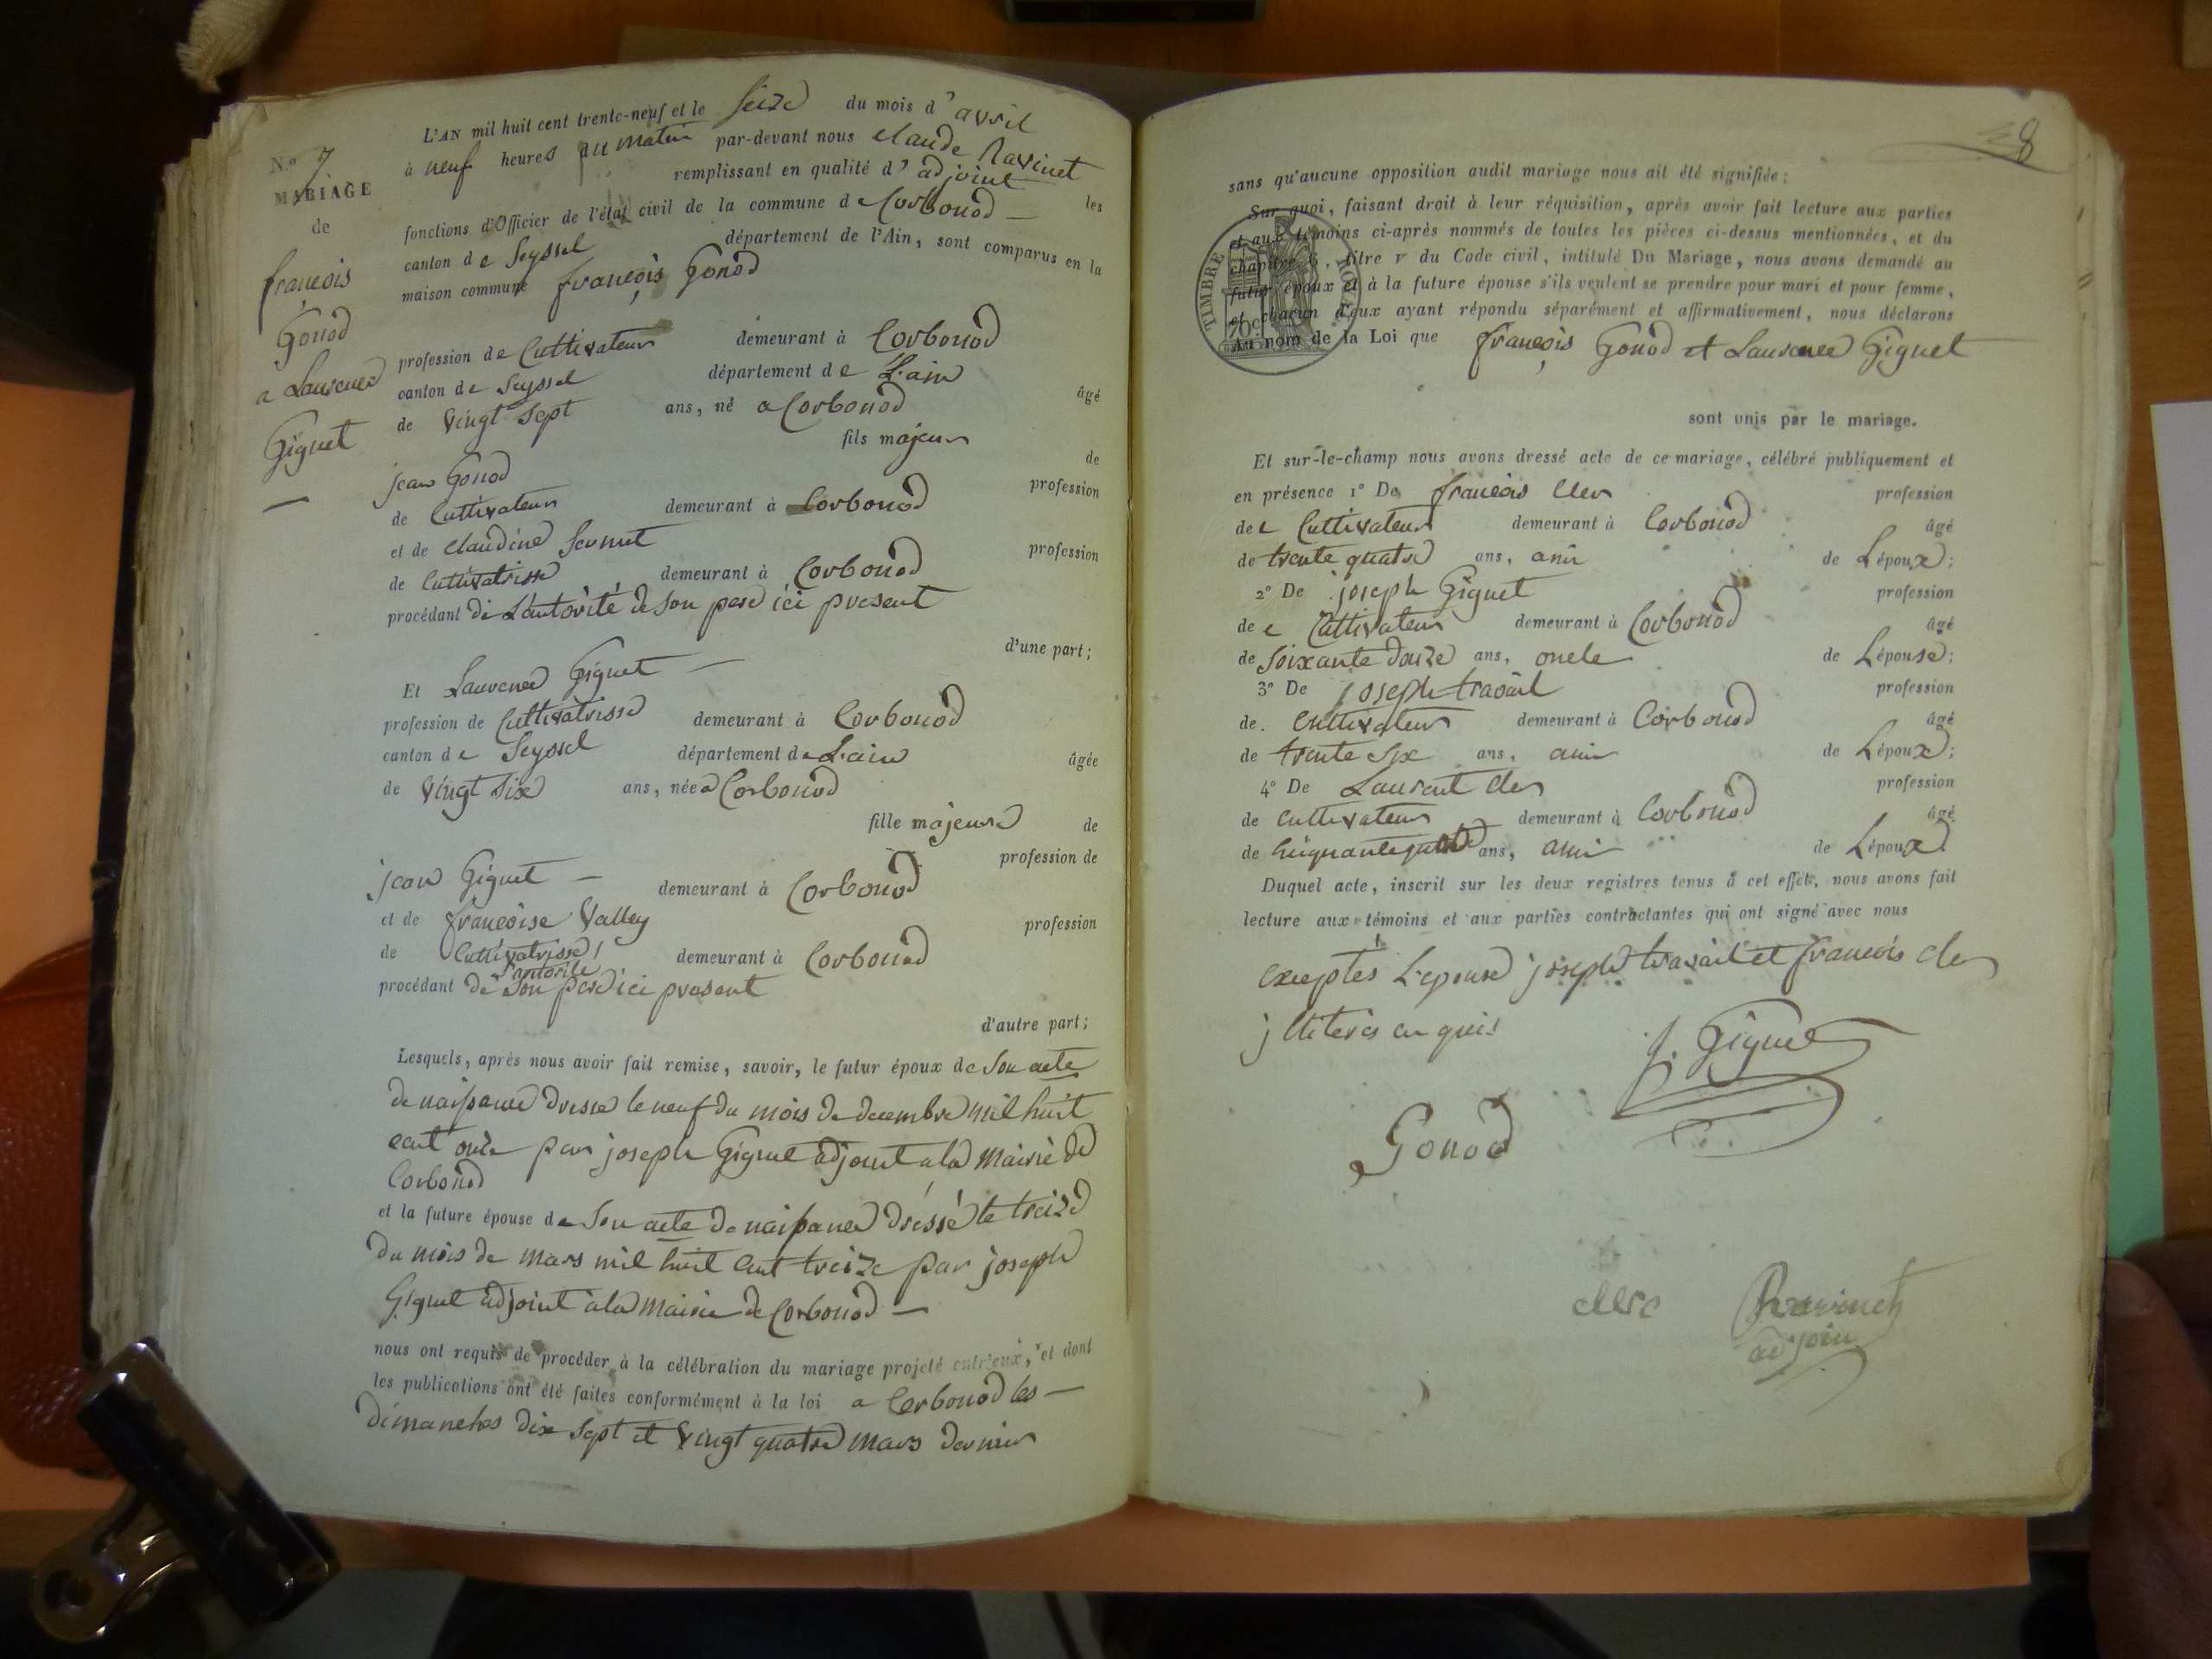 N.o 7
MARIAGE
de
françois
Gonod
a Laurence
Giguet
L'AN mil huit cent trente-neuf et le Seize du mois d'avril
à neuf heures du matin par-devant nous claude Ravinet
remplissant en qualité d'adjoint les
fonctions d'Officier de l'état civil de la commune de Corbonod
canton de Seyssel département de l'Ain, sont comparus en la
maison commune françois Gonod
profession de Cultivateur demeurant à Corbonod
canton de Seyssel département de L'ain âgé
de vingt sept ans, né a Corbonod
fils majeur de
jean Gonod profession
de Cultivateur demeurant à Corbonod
et de claudine profession
de Cultivatrisse demeurant à Corbonod
procédant de L'autorité de son pere ici present
d'une part;
Et Laurence Giguet
profession de Cultivatrisse demeurant à Corbonod
canton de Seyssel département de L'ain âgée
de vingt six ans, née a Corbonod
fille majeure de
jean Giguet profession de
demeurant à Corbonod
et de francoise Valley profession
de Cultivatrisse demeurant à Corbonod
procédant de l'autorité son pere ici present
d'autre part;
Lesquels, après nous avoir fait remise, savoir, le futur époux de Son acte
de naissance dressé le neuf du mois de decembre mil huit
cent onze par joseph Giguet adjoint a la Mairie de
Corbonod
et la future épouse de Son acte de naissance dressé le treize
du mois de mars mil huit cent treize par joseph
Giguet adjoint à la Mairie de Corbonod
nous ont requis de procéder à la célébration du mariage projeté entr'eux, et dont
les publications ont été faites conformément à la loi a Corbonod les
dimanches dix sept et vingt quatre mars dernier
8
sans qu'aucune opposition audit mariage nous ait été signifiée;
Sur quoi, faisant droit à leur réquisition, après avoir fait lecture aux parties
et aux témoins ci-après nommés de toutes les pièces ci-dessus mentionnées, et du
chapitre 6, titre v du Code civil, intitulé Du Mariage, nous avons demandé au
futur époux et à la future épouse s'ils veulent se prendre pour mari et pour femme,
et chacun d'eux ayant répondu séparément et affirmativement, nous déclarons
Au nom de la Loi que françois Gonod et Laurence Giguet
TIMBRE ROYAL
70c
sont unis par le mariage.
Et sur-le-champ nous avons dressé acte de ce mariage, célébré publiquement et
en présence 1° De francois Cler profession
de Cultivateur demeurant à Corbonod âgé
de trente quatre ans, ami de L'époux;
2° De joseph Giguet profession
de Cultivateur demeurant à Corbonod âgé
de soixante douze ans, oncle de L'épouse;
3° De joseph travail profession
de cultivateur demeurant à Corbonod âgé
de trente six ans, ami de L'époux;
4° De Laurent Cler profession
de cultivateur demeurant à Corbonod âgé
de ans, ami de L'époux.
Duquel acte, inscrit sur les deux registres tenus à cet effet, nous avons fait
lecture aux témoins et aux parties contractantes qui ont signé avec nous
exceptés L'epouse joseph travail et francois cler
jlliterés en quis
J. Giguet
Gonod
clerc
Ravinet
adjoin